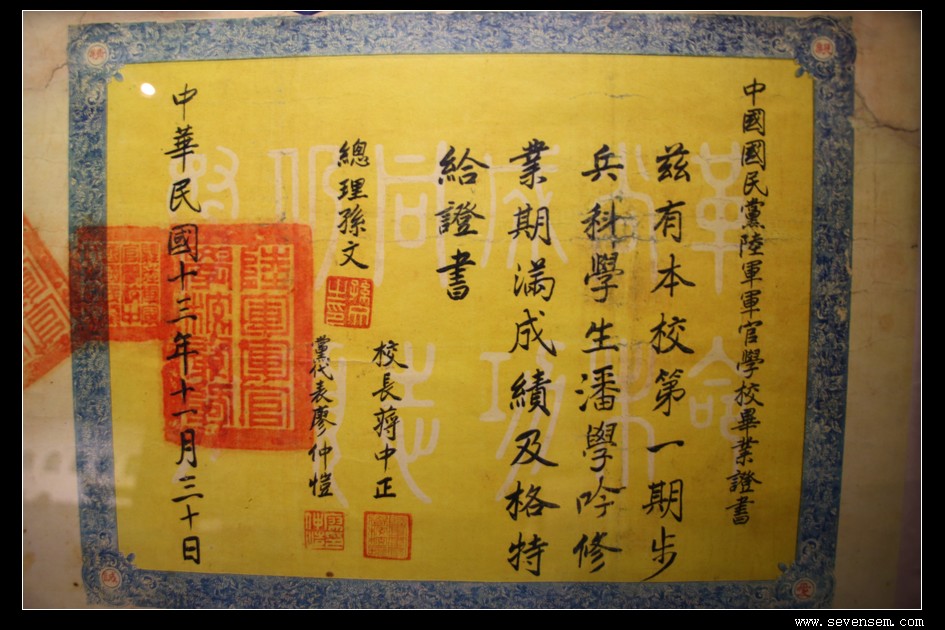 中國國民黨陸軍軍官學校畢業證書
茲有本校第一期步
兵科學生潘學吟修
業期滿成績及格特
給證書
總理孫文
校長蔣中正
黨代表廖仲愷
中華民國十三年十一月三十日
革命尚未成功
同志仍須努力
www.sevensem.com